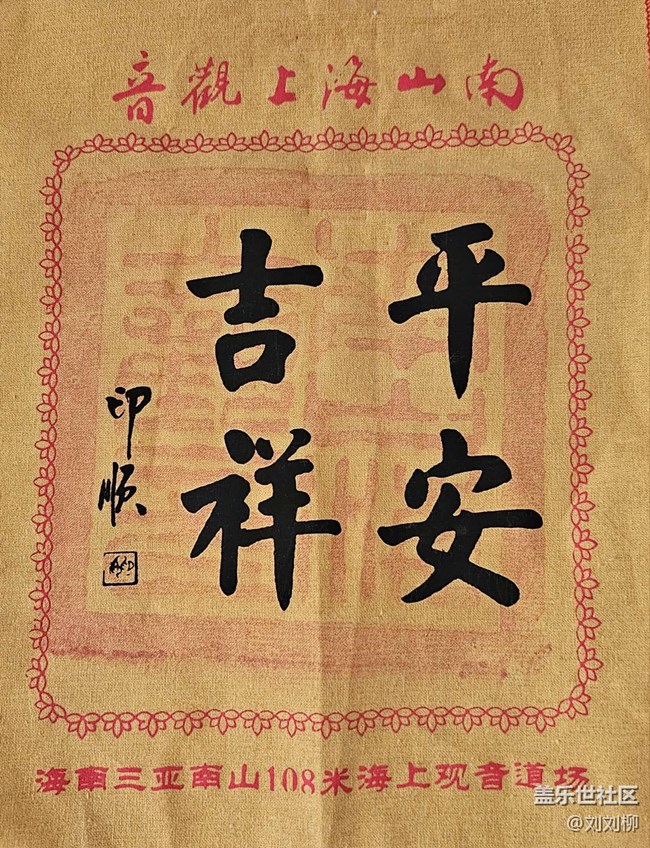 南山海上觀音
平安
吉祥
印顺
海南三亚南山108米海上观音道场
盖乐世社区
@刘刘柳